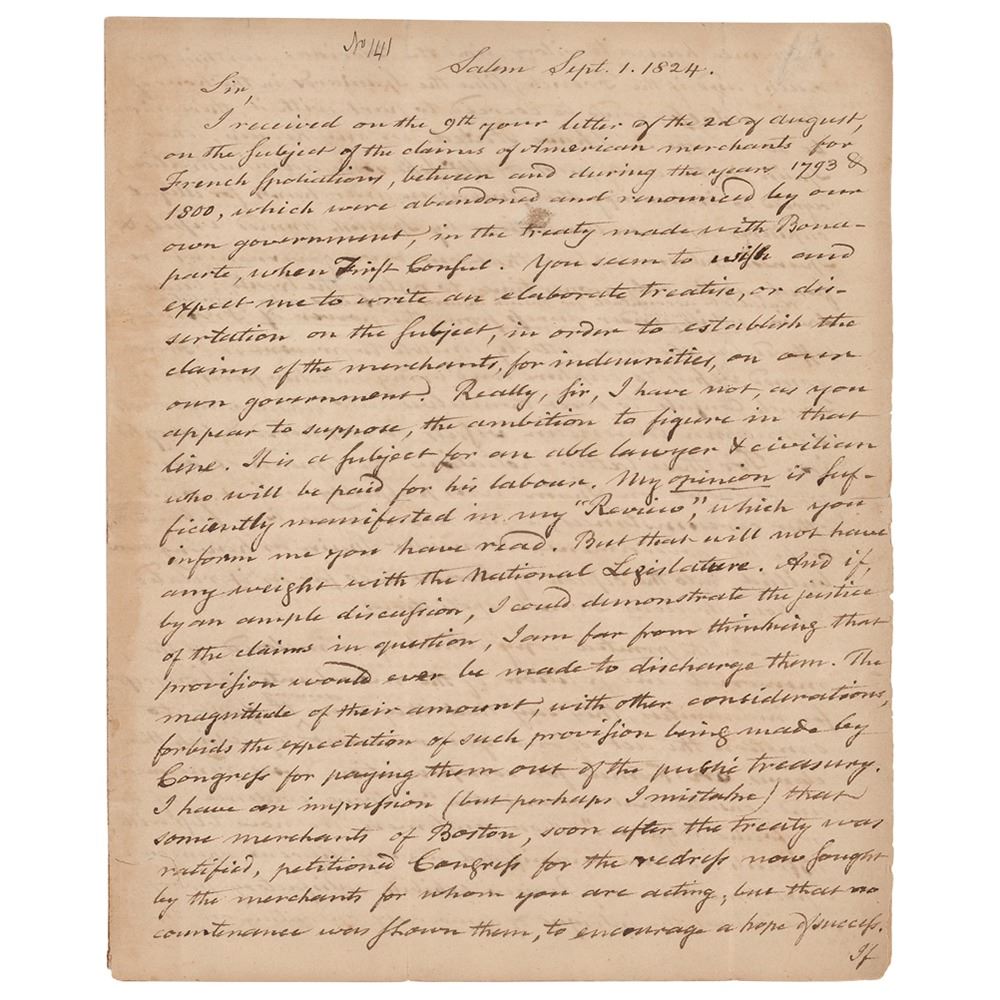 No 141
Salem Sept. 1. 1824.
Sir,
I received on the 9th your letter of the 2d of August,
on the subject of the claims of American merchants for
French spoliations, between and during the years 1793 &
1800, which were abandoned and renounced by our
own government, in the treaty made with Bona-
parte, when First Consul. You seem to wish and
expect me to write an elaborate treatise, or dis-
sertation on the subject, in order to establish the
claims of the merchants, for indemnities, on our
own government. Really, sir, I have not, as you
appear to suppose, the ambition to figure in that
line. It is a subject for an able lawyer & civilian
who will be paid for his labour. My opinion is suf-
ficiently manifested in my "Review", which you
inform me you have read. But that will not have
any weight with the National Legislature. And if,
by an ample discussion, I could demonstrate the justice
of the claims in question, I am far from thinking that
provision would ever be made to discharge them. The
magnitude of their amount, with other considerations,
forbids the expectation of such provision being made by
Congress for paying them out of the public treasury.
I have an impression (but perhaps I mistake) that
some merchants of Boston, soon after the treaty was
ratified, petitioned Congress for the redress now sought
by the merchants for whom you are acting; but that no
countenance was shown them, to encourage a hope of success.
If